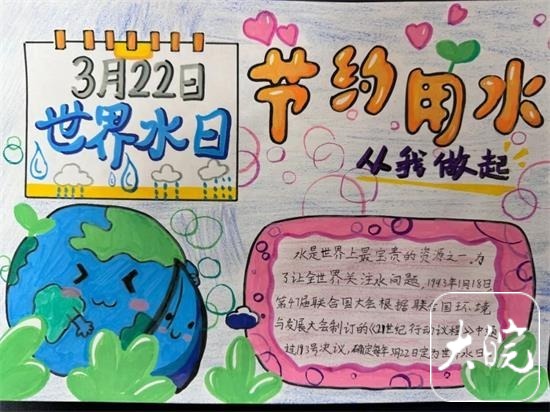 3月22日
世界水日
节约用水
从我做起
水是世界上最宝贵的资源之一,为
了让全世界关注水问题,1993年1月18日
第47届联合国大会根据联合国环境
与发展大会制订的《21世纪行动议程》中通
过193号决议,确定每年3月22日定为世界水日
大皖